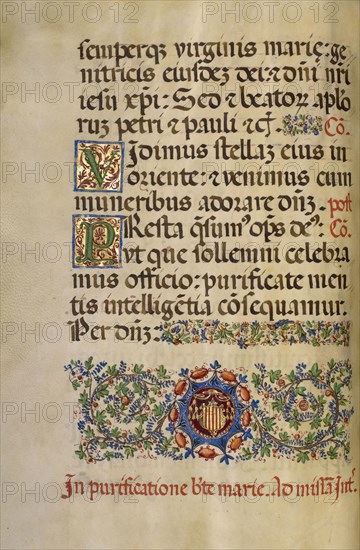 semperqꝫ virginis marię: ge
nitricis eiusdeꝫ dei: ⁊ dñi nři
iesu xp̃i: Sed ⁊ beatoꝝ aplo
ruꝫ petri ⁊ pauli ⁊ cͭ. Cõ.
Vidimus stellaꝫ eius in
oriente: ⁊ venimus cum
muneribus adorare dñꝫ. post
PResta q̃sumꝰ oꝑs deꝰ: Cõ.
vt que sollemni celebra
mus officio: purificate men
tis intelligẽtia cõsequamur.
Per dñꝫ:
In purificatione bt̃e marie. Ad missã Int̃.